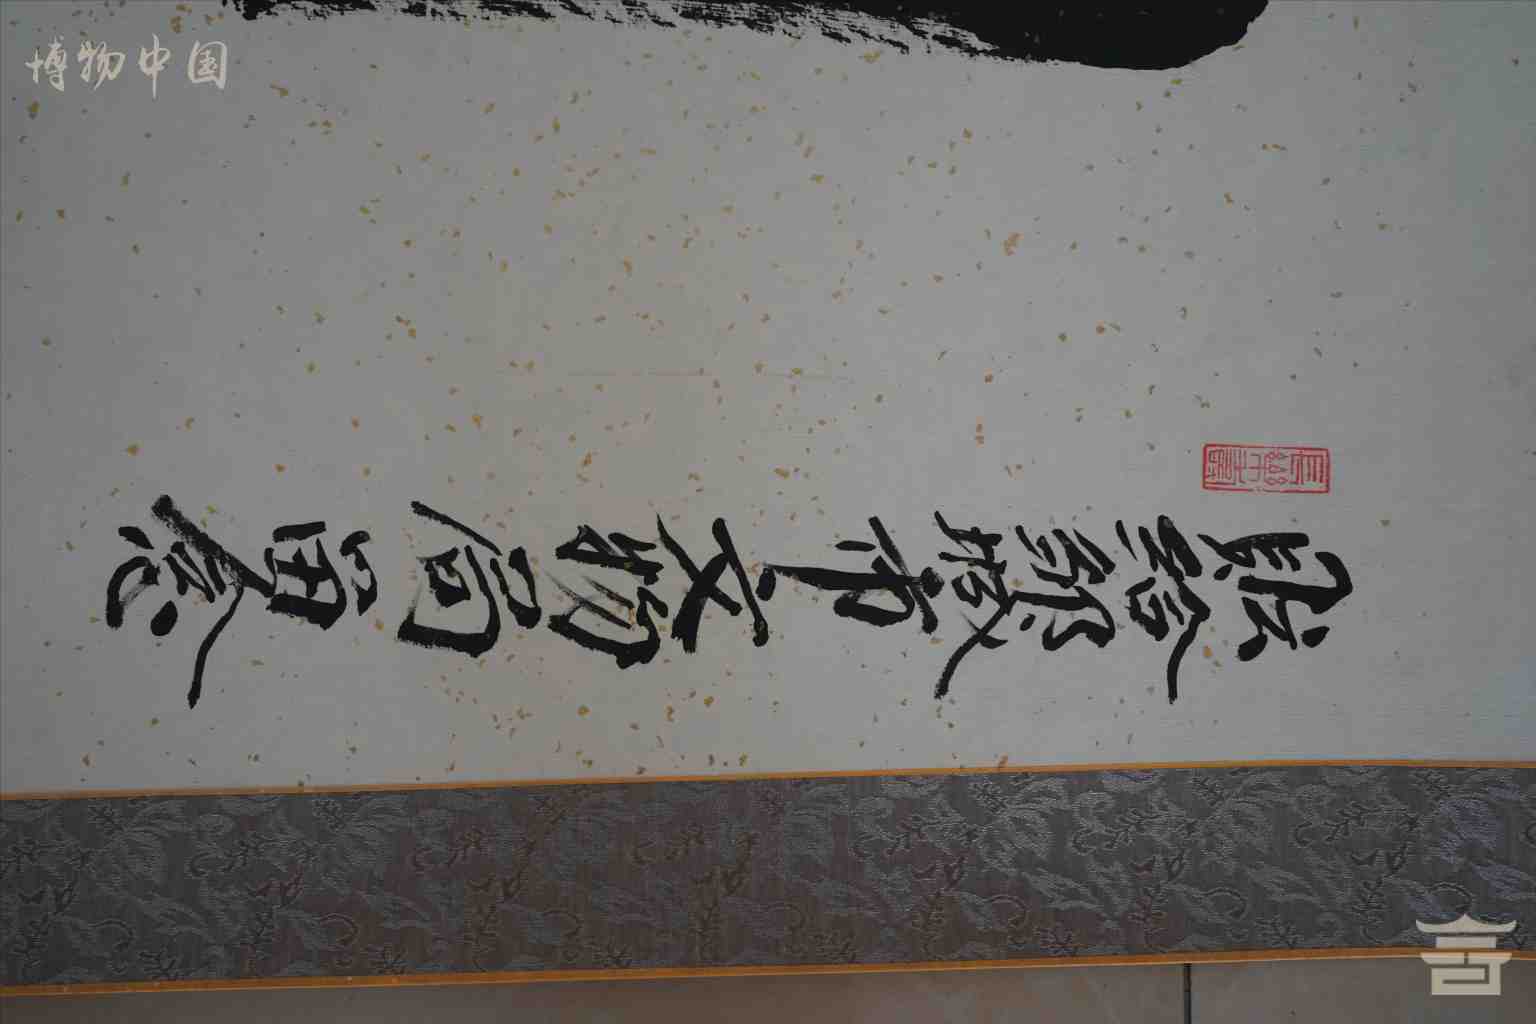 博物中国
给鄒城市文物局留念